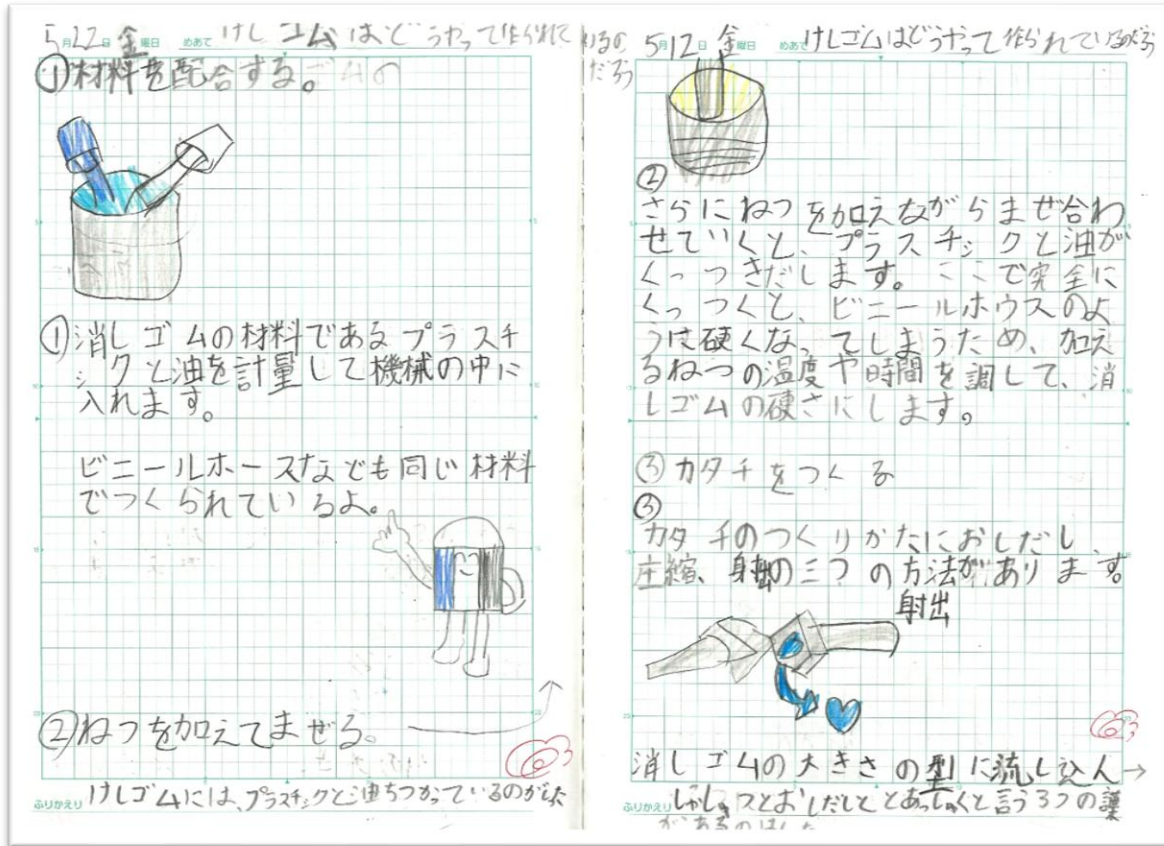 5月12日 金曜日 めあて けしゴムはどうやって作られて
いるの
だろう
①材料を配合する。
①消しゴムの材料であるプラスチ
ックと油を計量して機械の中に
入れます。
ビニールホースなども同じ材料
でつくられているよ。
②ねつを加えてまぜる。
ふりかえり けしゴムには、プラスチックと油
5月12日 金曜日 めあて けしゴムはどうやって作られているのだろう
②
さらにねつを加えながらまぜ合わ
せていくと、プラスチックと油が
くっつきだします。ここで完全に
くっつくと、ビニールホウスのよ
うに硬くなってしまうため、加え
るねつの温度や時間を調して、消
しゴムの硬さにします。
③カタチをつくる
③
カタチのつくりかたにおしだし、
圧縮、射出の三つの方法があります。
射出
消しゴムの大きさの型に流し込ん→
ふりかえり おしだしと と言う3つの